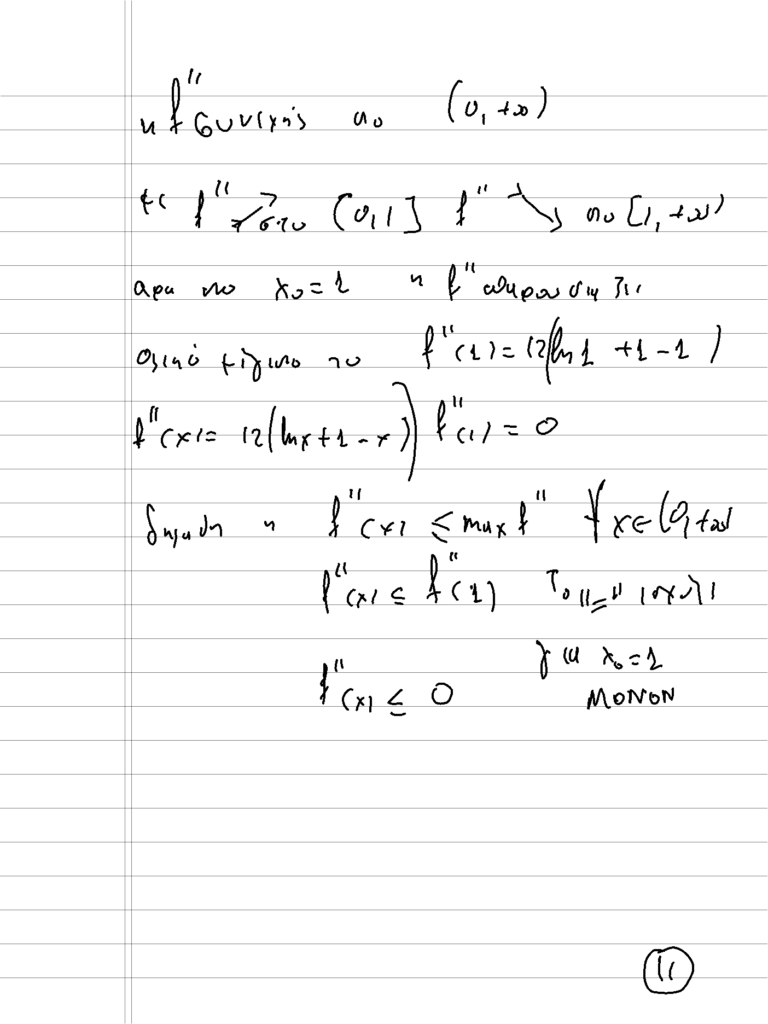 η f'' συνεχής στο (0, +∞)
f'' ↗ στο (0,1] f'' ↘ στο [1, +∞)
άρα στο x₀=1 η f'' παρουσιάζει
ολικό μέγιστο το f''(1)=12(ln1 +1-1)
f''(x)=12(lnx+1-x) f''(1)=0
δηλαδή η f''(x) ≤ max f'' ∀x∈(0,+∞)
f''(x) ≤ f''(1) Το "=" ισχύει
για x₀=1
f''(x) ≤ 0 ΜΟΝΟΝ
11